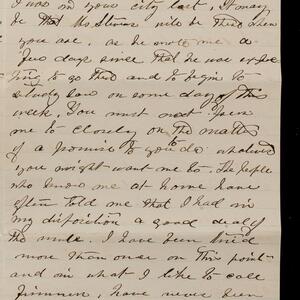 I was in your city last, It may
be that Mr Stevens will be there when
you are, as he wrote me a
few days since that he was expec
ting to go there and to begin to
study law on some day of this
week, You must not
me to closely on the matter
of a promise to you to do whatever
you might want me to. The people
who know me at home have
often told me that I had in
my disposition a good deal of
the mule. I have been tried
more than once on this point
and in what I like to call
firmness, have never been